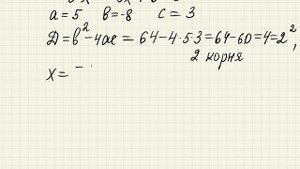 a = 5 в = -8 c = 3
D = в² - 4ac = 64 - 4 · 5 · 3 = 64 - 60 = 4 = 2²,
2 корня
x = -